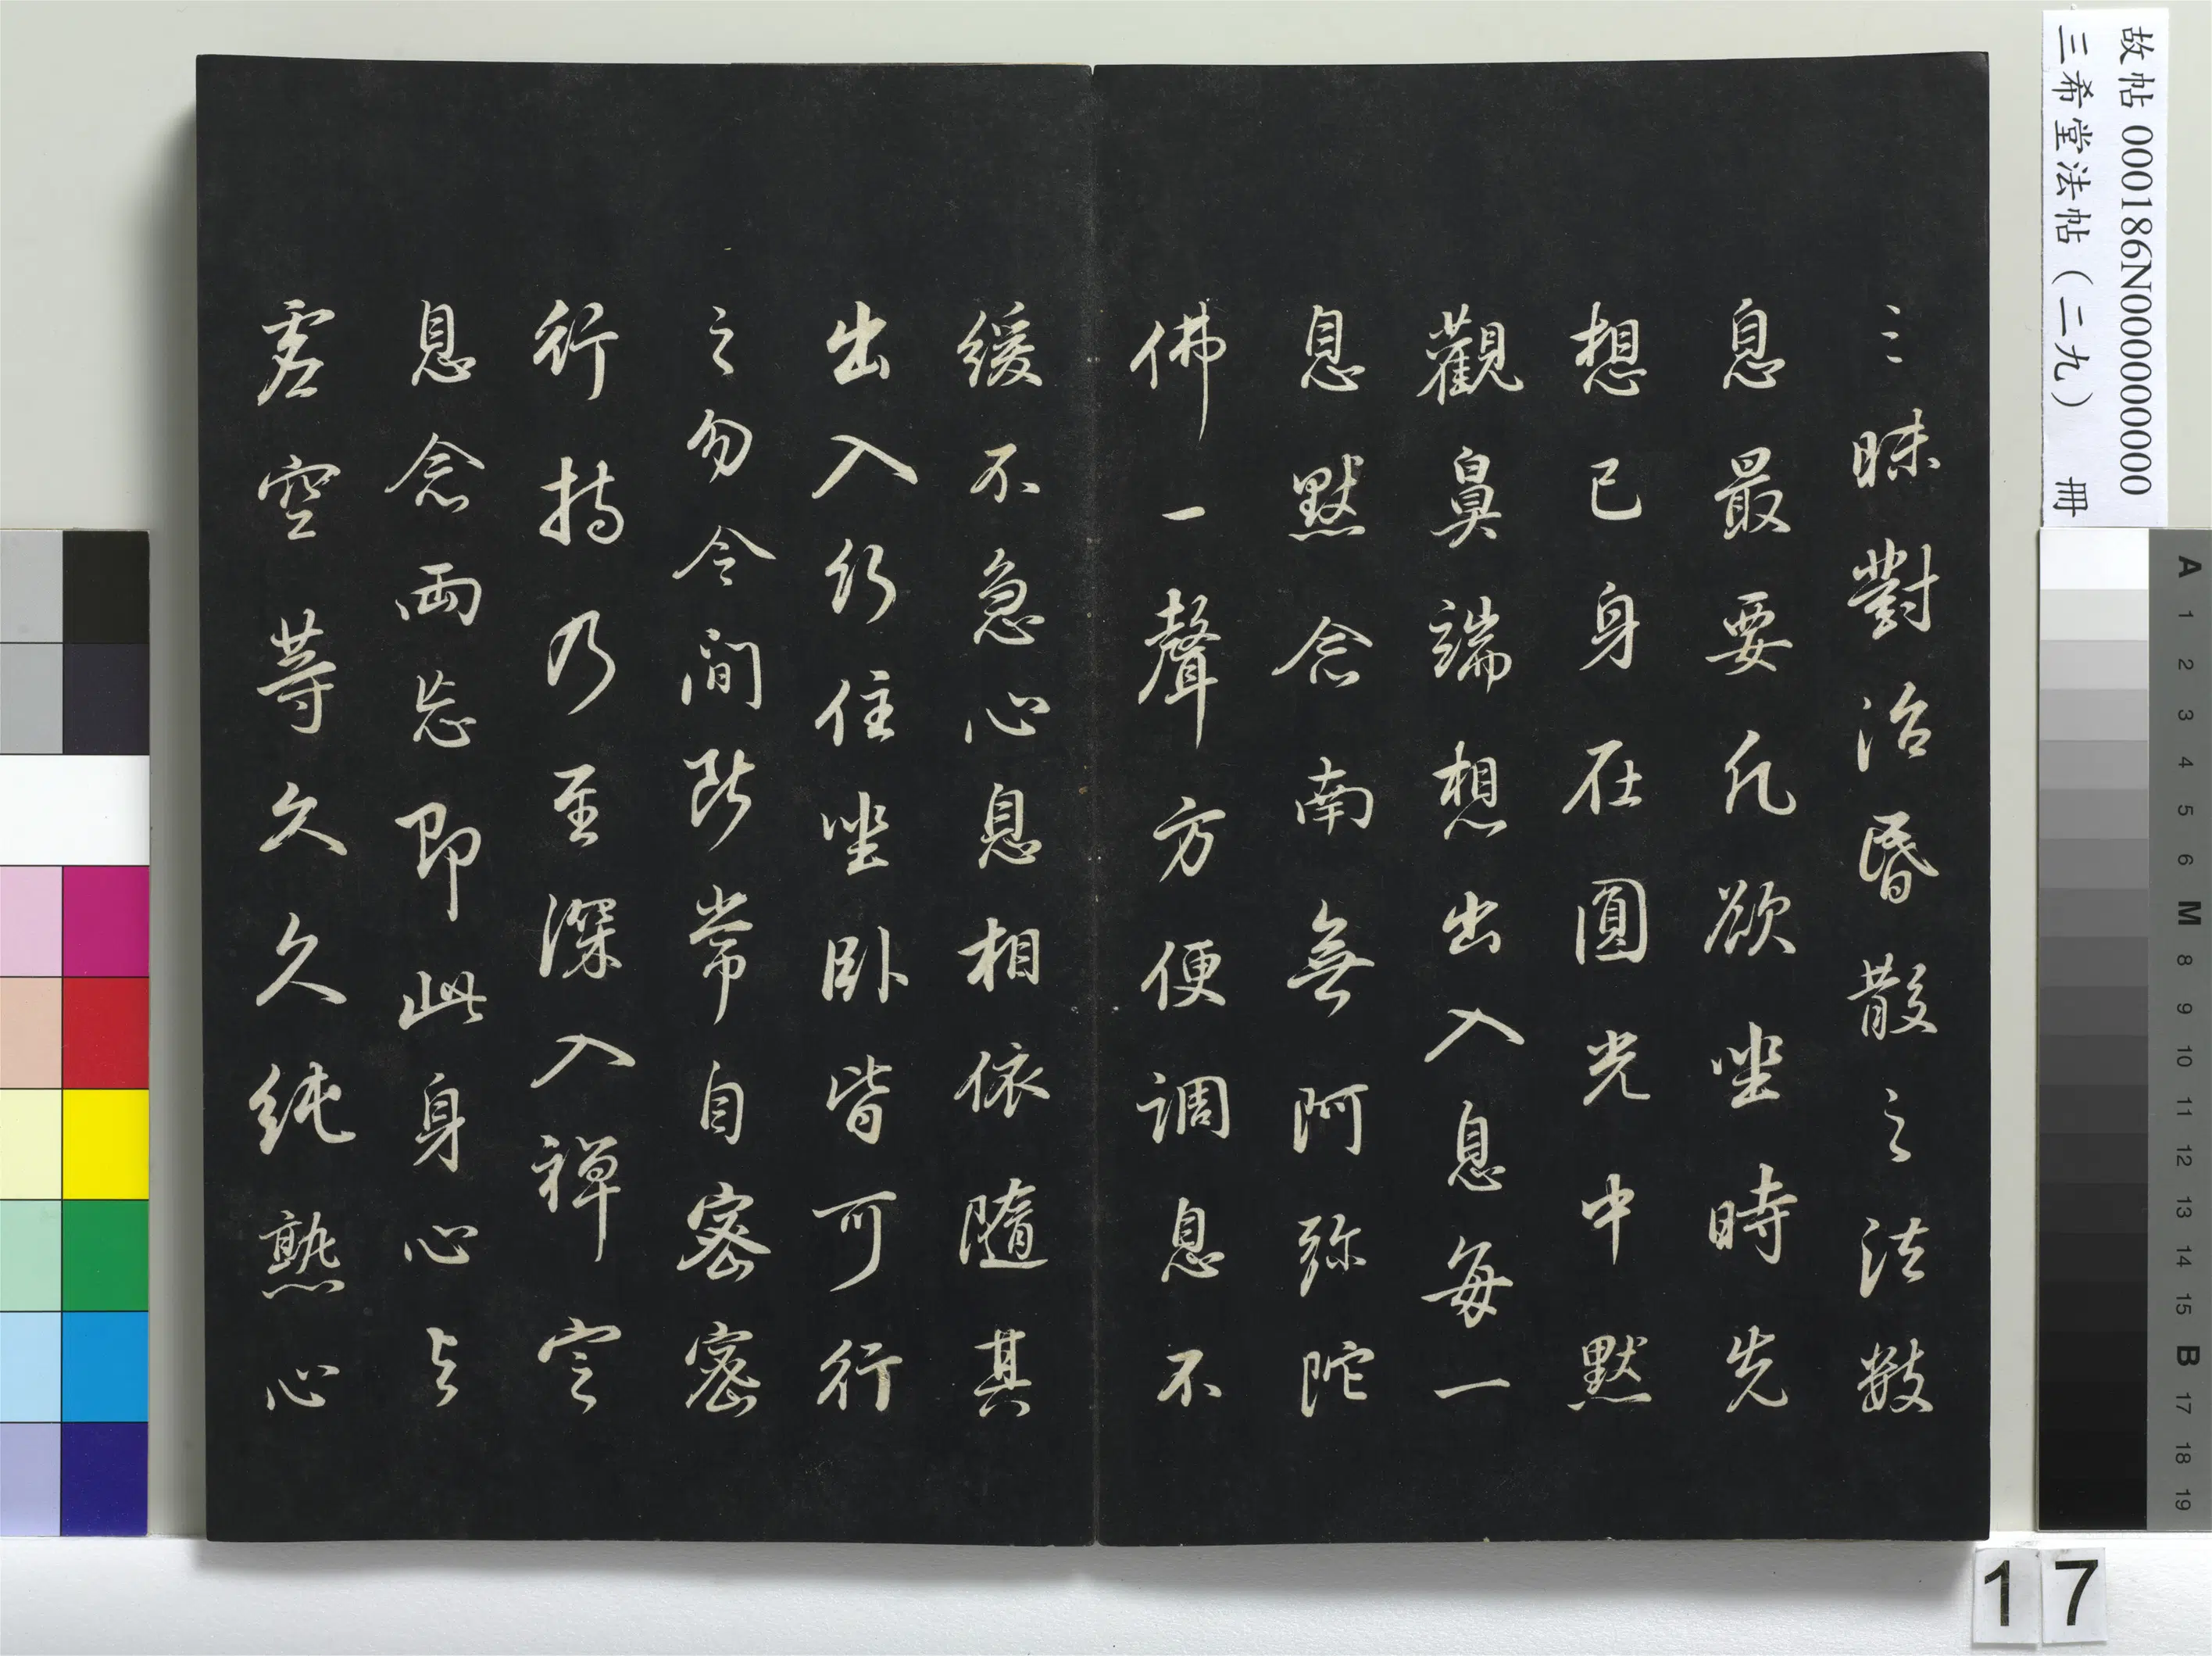 三昧對治昏散之法數
息最要凡欲坐時先
想己身在圓光中默
觀鼻端想出入息每一
息默念南無阿彌陀
佛一聲方便調息不
緩不急心息相依隨其
出入行住坐臥皆可行
之勿令間斷常自密密
行持乃至深入禪定
息念兩忘即此身心與
虛空等久久純熟心
故帖 000186N000000000
三希堂法帖（二九） 冊
A
1
2
3
4
5
6
M
8
9
10
11
12
13
14
15
B
17
18
19
17